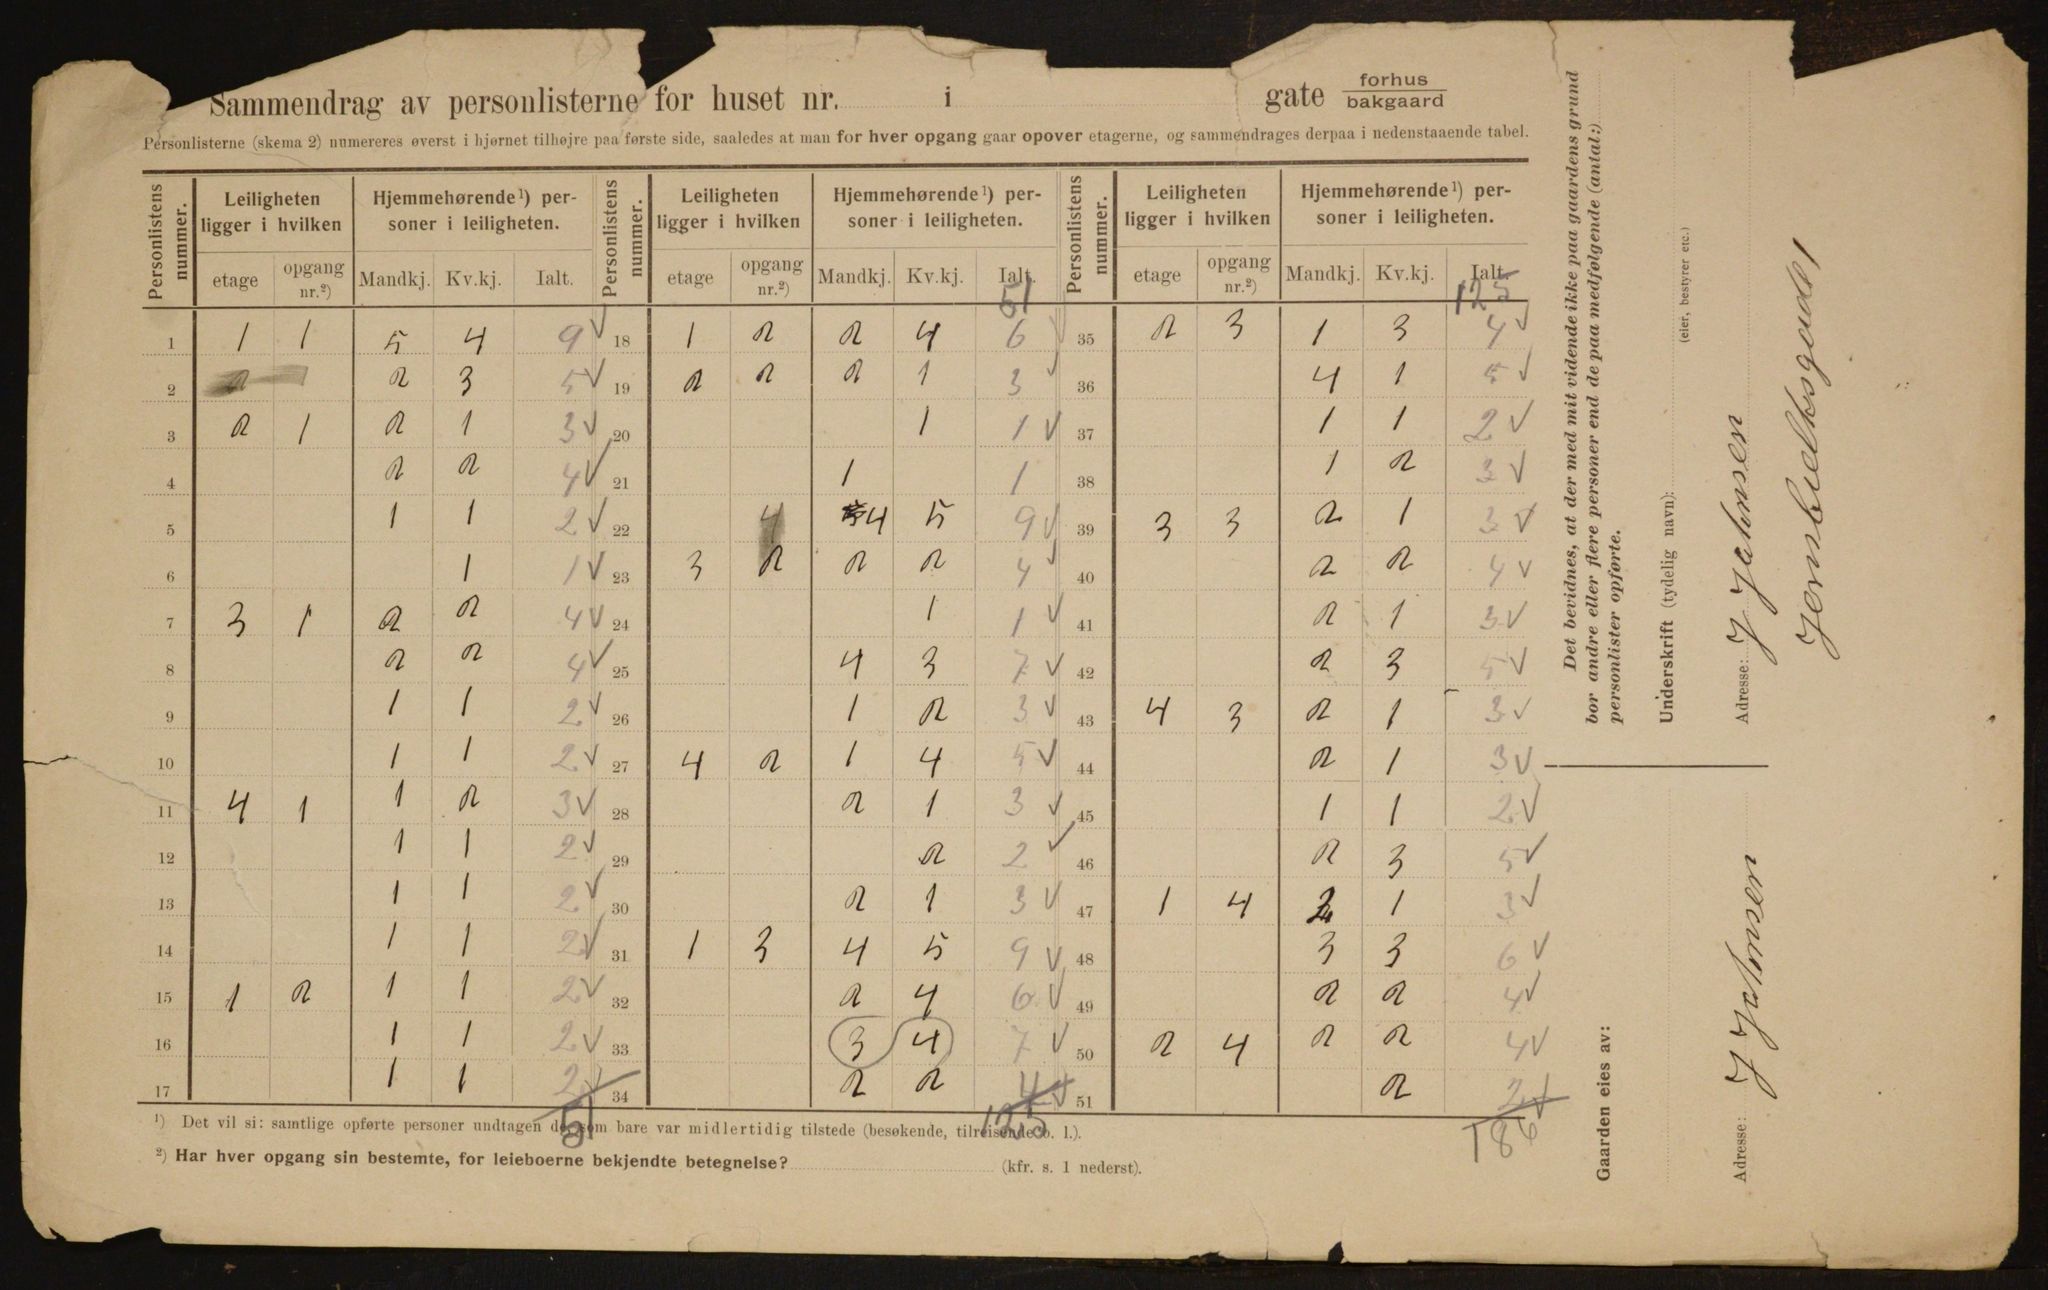 Sammendrag av personlisterne for huset nr. i gate forhus
bakgaard
Personlisterne (skema 2) numereres øverst i hjørnet tilhøjre paa første side, saaledes at man for hver opgang gaar opover etagerne, og sammendrages derpaa i nedenstaaende tabel.
Personlistens nummer. Leiligheten ligger i hvilken Hjemmehørende¹) personer i leiligheten. Personlistens nummer. Leiligheten ligger i hvilken Hjemmehørende¹) personer i leiligheten. Personlistens nummer. Leiligheten ligger i hvilken Hjemmehørende¹) personer i leiligheten.
etage opgang nr.²) Mandkj. Kv.kj. Ialt. etage opgang nr.²) Mandkj. Kv.kj. Ialt. etage opgang nr.²) Mandkj. Kv.kj. Ialt.
51 125
1 1 1 5 4 9 √ 18 1 2 2 4 6 √ 35 2 3 1 3 4 √
2 2 2 3 5 √ 19 2 2 2 1 3 √ 36 4 1 5 √
3 2 1 2 1 3 √ 20 1 1 √ 37 1 1 2 √
4 2 2 4 √ 21 1 1 38 1 2 3 √
5 1 1 2 √ 22 4 4 5 9 √ 39 3 3 2 1 3 √
6 1 1 √ 23 3 2 2 2 4 √ 40 2 2 4 √
7 3 1 2 2 4 √ 24 1 1 √ 41 2 1 3 √
8 2 2 4 √ 25 4 3 7 √ 42 2 3 5 √
9 1 1 2 √ 26 1 2 3 √ 43 4 3 2 1 3 √
10 1 1 2 √ 27 4 2 1 4 5 √ 44 2 1 3 √
11 4 1 1 2 3 √ 28 2 1 3 √ 45 1 1 2 √
12 1 1 2 √ 29 2 2 √ 46 2 3 5 √
13 1 1 2 √ 30 2 1 3 √ 47 1 4 2 1 3 √
14 1 1 2 √ 31 1 3 4 5 9 √ 48 3 3 6 √
15 1 2 1 1 2 √ 32 2 4 6 √ 49 2 2 4 √
16 1 1 2 √ 33 3 4 7 √ 50 2 4 2 2 4 √
17 1 1 2 √ 34 2 2 4 √ 51 2 2 √
51 125 186
¹) Det vil si: samtlige opførte personer undtagen de som bare var midlertidig tilstede (besøkende, tilreisende o. l.).
²) Har hver opgang sin bestemte, for leieboerne bekjendte betegnelse? (kfr. s. 1 nederst).
Det bevidnes, at der med mit vidende ikke paa gaardens grund
bor andre eller flere personer end de paa medfølgende (antal:)
personlister opførte.
Underskrift (tydelig navn):
(eier, bestyrer etc.)
J Johnsen
Adresse:
Jernbulksgade 1
Gaarden eies av:
J Johnsen
Adresse: